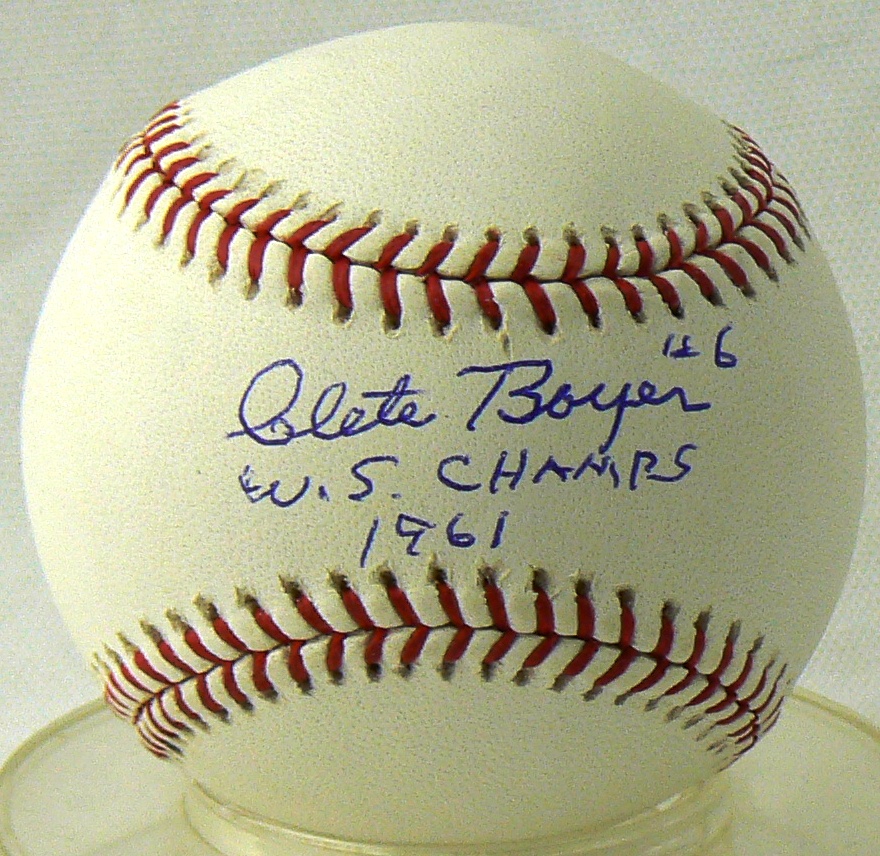 Clete Boyer #6
W.S. CHAMPS
1961